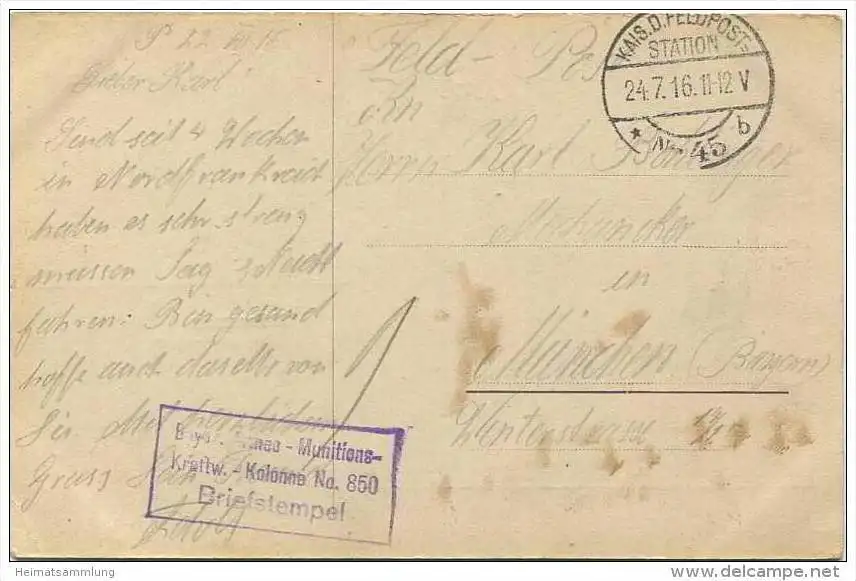 22. VII 16
Lieber Karl
Sind seit 4 Wochen
in Nordfrankreich
haben es sehr streng
müssen Tag u Nacht
fahren. Bin gesund
hoffe auch daselbe von
Dir. Mit herzlichem
Gruss Dein
Feld - Post
An
Herrn Karl
Mechaniker
in
München (Bayern)
Winterstrasse
KAIS. D. FELDPOST=
STATION
24.7.16. 11-12 V
* Nr. 45 b
Munitions-
Kraftw. - Kolonne No. 850
Briefstempel
Heimatsammlung
delcampe.net